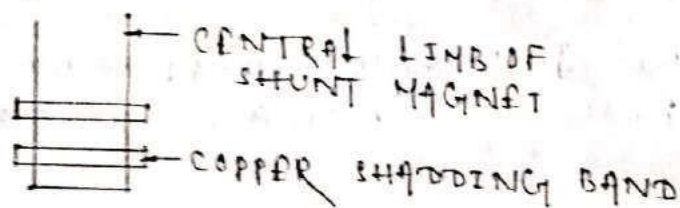 CENTRAL LIMB OF
SHUNT MAGNET
COPPER SHADDING BAND